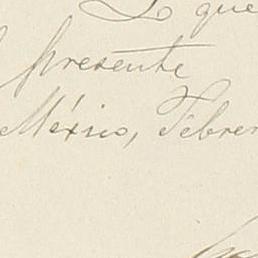 Lo que
presente
México, Febrer